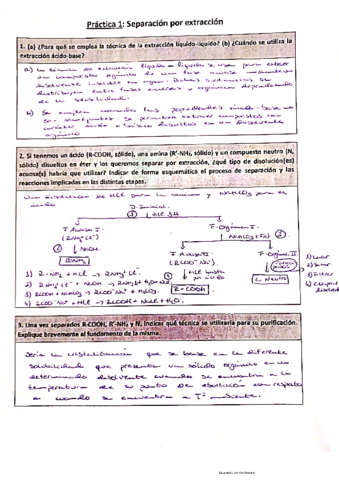 Práctica 1: Separación por extracción
1. (a) ¿Para qué se emplea la técnica de la extracción líquido-líquido? (b) ¿Cuándo se utiliza la
extracción ácido-base?
a) La técnica de extracción líquido-líquido se usa para extraer
un compuesto orgánico de una fase acuosa mediante un
disolvente
distribuyen entre fases acuosa y orgánica dependiendo
de su solubilidad.
b) Se emplea cuando las propiedades ácido-base
se permiten extraer compuestos con
carácter ácido o básico disueltos en un disolvente
orgánico
2. Si tenemos un ácido (R-COOH, sólido), una amina (R'-NH₂, sólido) y un compuesto neutro (N,
sólido) disueltos en éter y los queremos separar por extracción, ¿qué tipo de disolución(es)
acuosa(s) habría que utilizar? Indicar de forma esquemática el proceso de separación y las
reacciones implicadas en las distintas etapas.
Una disolución de HCl para la amina y NaHCO₃ para el
ácido.
D. Inicial
① HCl 5M
F. Acuosa I
(RNH₃⁺Cl⁻)
② NaOH
RNH₂
F. Orgánica I
③ NaHCO₃ (5%)
F. Acuosa II
(RCOO⁻Na⁺)
④ HCl hasta
pH ácido
R-COOH
F. Orgánica II
R-Neutro
1) Lavar
2) Secar
3) Filtrar
1) R-NH₂ + HCl → RNH₃⁺Cl⁻
2) RNH₃⁺Cl⁻ + NaOH → RNH₂ + H₂O + NaCl
3) RCOOH + NaHCO₃ → RCOO⁻Na⁺ + H₂CO₃
4) RCOO⁻Na⁺ + HCl → RCOOH + NaCl + H₂O
3. Una vez separados R-COOH, R'-NH₂ y N, indicar qué técnica se utilizaría para su purificación.
Explique brevemente el fundamento de la misma.
Sería la cristalización que se basa en la diferente
solubilidad que presenta un sólido orgánico en un
determinado disolvente cuando se encuentra a la
temperatura de su punto de ebullición con respecto
a cuando se encuentra a Tª ambiente.